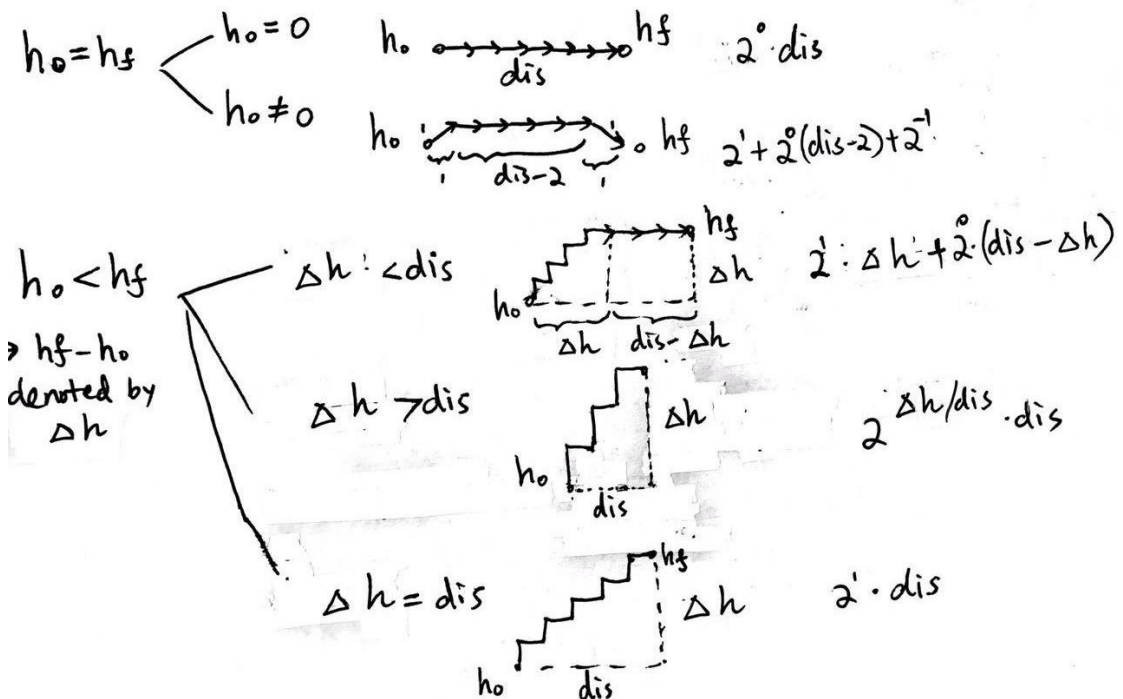 h₀ = hf
h₀ = 0
h₀ hf
dis
2⁰·dis
h₀ ≠ 0
h₀ hf
1 dis-2 1
2¹ + 2⁰(dis-2) + 2⁻¹
h₀ < hf
hf - h₀
denoted by
Δh
Δh < dis
h₀ hf
Δh
Δh dis-Δh
2¹·Δh + 2⁰·(dis - Δh)
Δh > dis
h₀
Δh
dis
2^Δh/dis · dis
Δh = dis
h₀ hf
Δh
dis
2¹ · dis